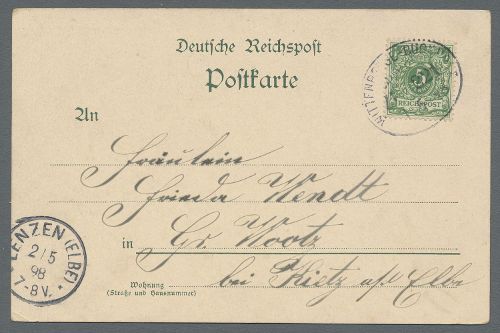 Deutsche Reichspost
Postkarte
5
REICHSPOST
WITTENB
An
Fräulein
Frieda Wendt
in Gr. Wootz
bei Kietz a/ Elbe
Wohnung
(Straße und Hausnummer)
LENZEN (ELBE)
2/5
98
7-8V.